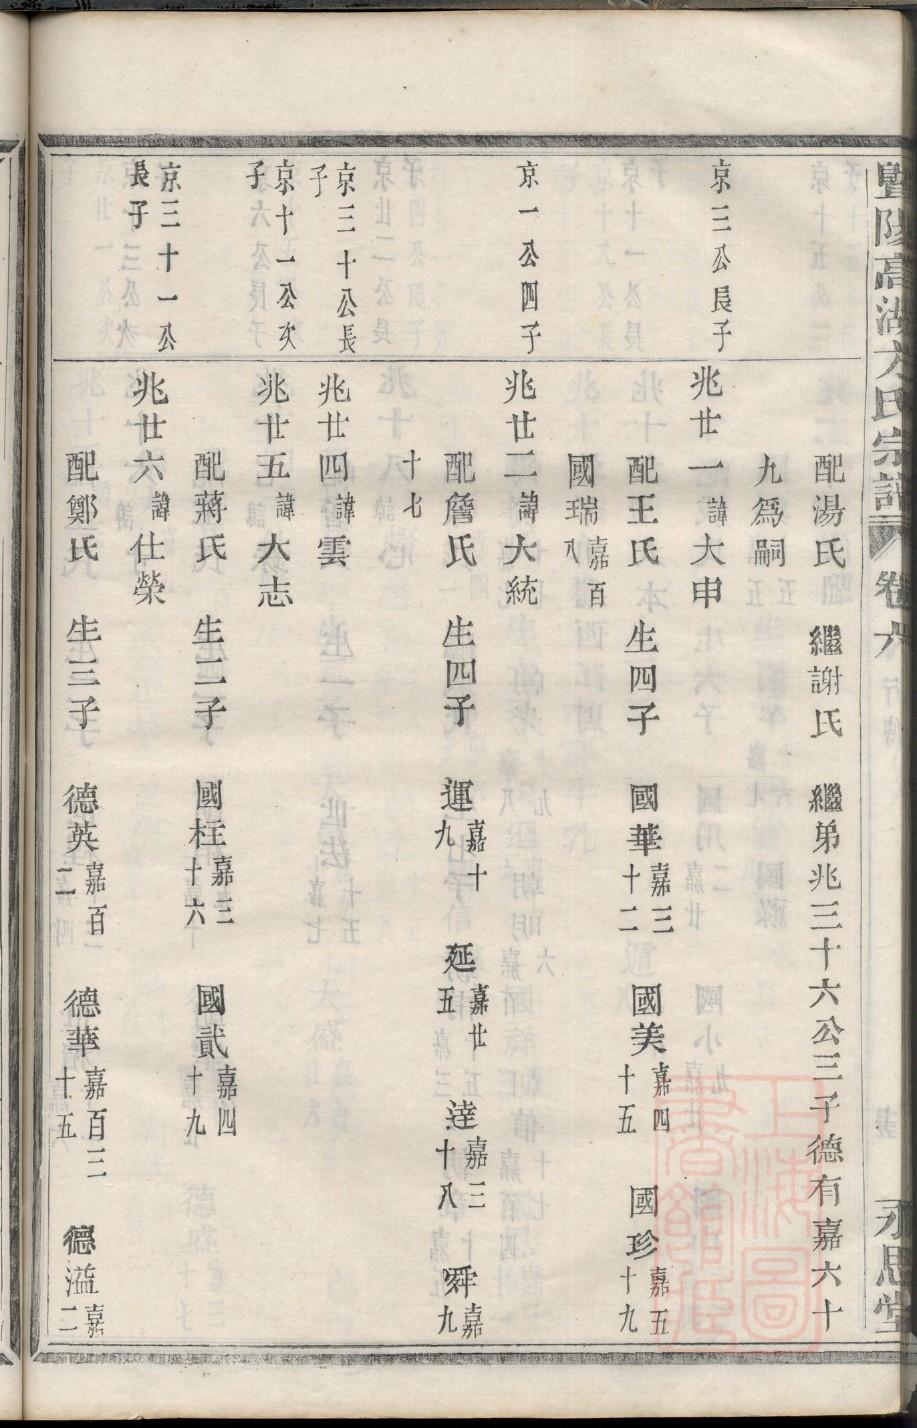 暨陽高湖方氏宗譜 卷六 永思堂
配湯氏 繼謝氏 繼弟兆三十六公三子德有嘉六十
九為嗣
京三公長子
兆廿一諱大申
配王氏 生四子 國華嘉三十二 國美嘉四十五 國珍嘉五十九
國瑞嘉百八
京一公四子
兆廿二諱大統
配詹氏 生四子 運嘉十九 延嘉廿五 逹嘉三十八 舜嘉九
十七
京三十公長子
兆廿四諱雲
京十一公次子
兆廿五諱大志
配蔣氏 生二子 國柱嘉三十六 國貳嘉四十九
京三十一公長子
兆廿六諱仕榮
配鄭氏 生三子 德英嘉百二 德華嘉百三十五 德溢嘉二